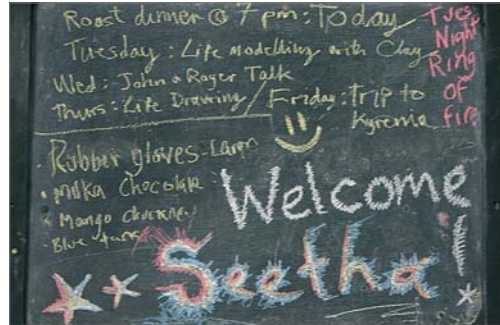 Roast dinner @ 7pm: Today
Tuesday: Life modelling with Clay
Wed: John & Roger Talk
Thurs: Life Drawing / Friday: Trip to
Kyrenia
Tues
Night
Ring
OF
fire
• Rubber gloves-
• Milka Chocolate
• Mango
• Blue
Welcome
Seetha!